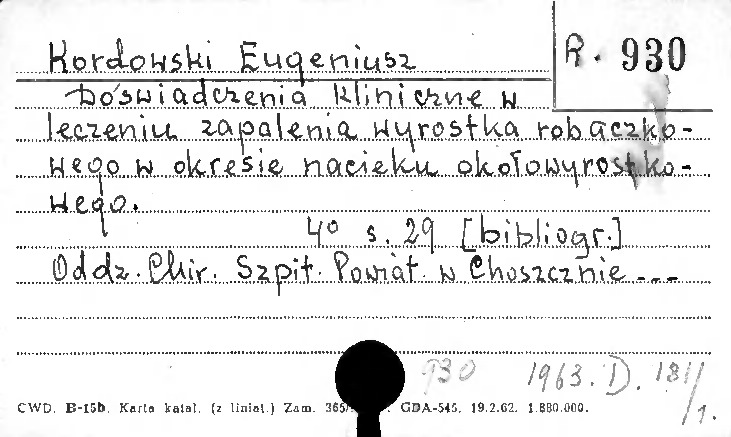 Kordowski Eugeniusz
R. 930
Doświadczenia kliniczne w
leczeniu zapalenia wyrostka robaczko-
wego w okresie nacieku okołowyrostko-
wego.
4° s. 29 [bibliogr.]
Oddz. Chir. Szpit. Powiat. w Choszcznie ---
930 1963. D. 181/1.
CWD. B-15b. Karta katal. (z liniat.) Zam. 365/ GDA-545. 19.2.62. 1.880.000.